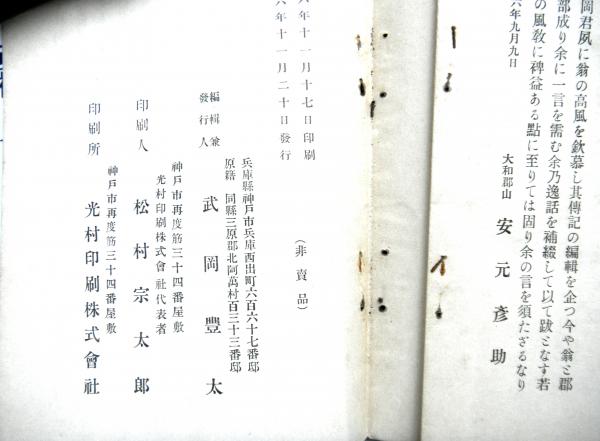 岡君夙に翁の高風を欽慕し其傳記の編輯を企つ今や翁と郡
部成り余に一言を需む余乃逸話を補綴して以て跋となす若
の風敎に裨益ある點に至りては固り余の言を須たざるなり
六年九月九日
大和郡山 安元彥助
六年十一月十七日印刷
六年十一月二十日發行
(非賣品)
兵庫縣神戶市兵庫西出町六百六十七番邸
原籍 同縣三原郡北阿萬村百三十三番邸
編輯兼
發行人 武岡豐太
神戶市再度筋三十四番屋敷
光村印刷株式會社代表者
印刷人 松村宗太郎
神戶市再度筋三十四番屋敷
印刷所 光村印刷株式會社